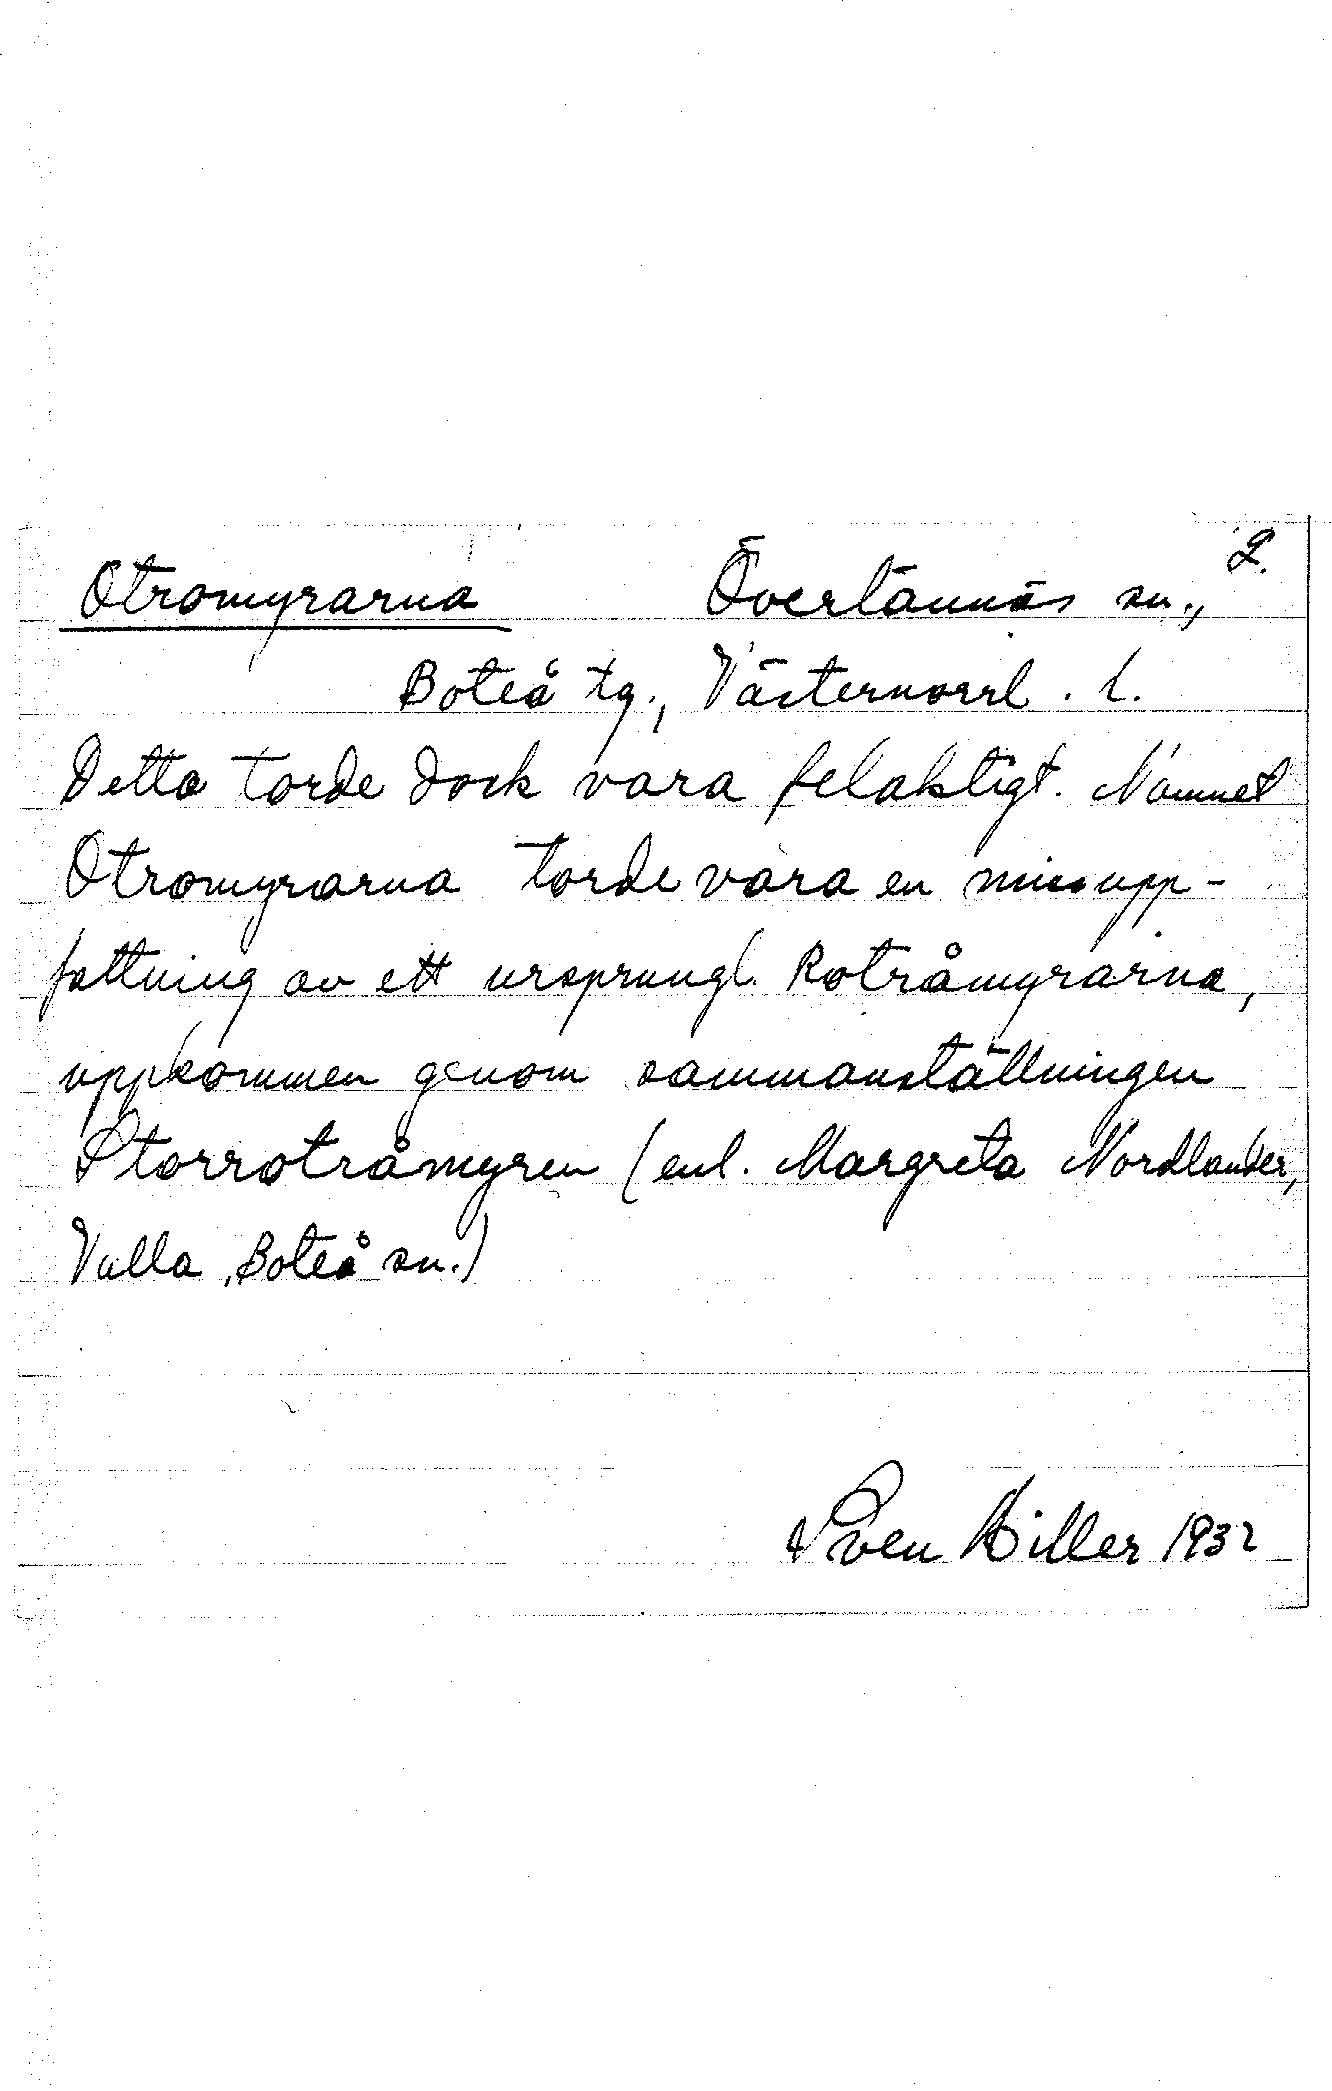 2.
Otromyrarna Överlännäs sn.,
Boteå tg., Västernorrl. l.
Detta torde dock vara felaktigt. Namnet
Otromyrarna torde vara en missupp-
fattning av ett ursprungl. Rotråmyrarna,
uppkommen genom sammanställningen
Storrotråmyren (enl. Margreta Nordlander,
Valla, Boteå sn.)
Sven Hiller 1932